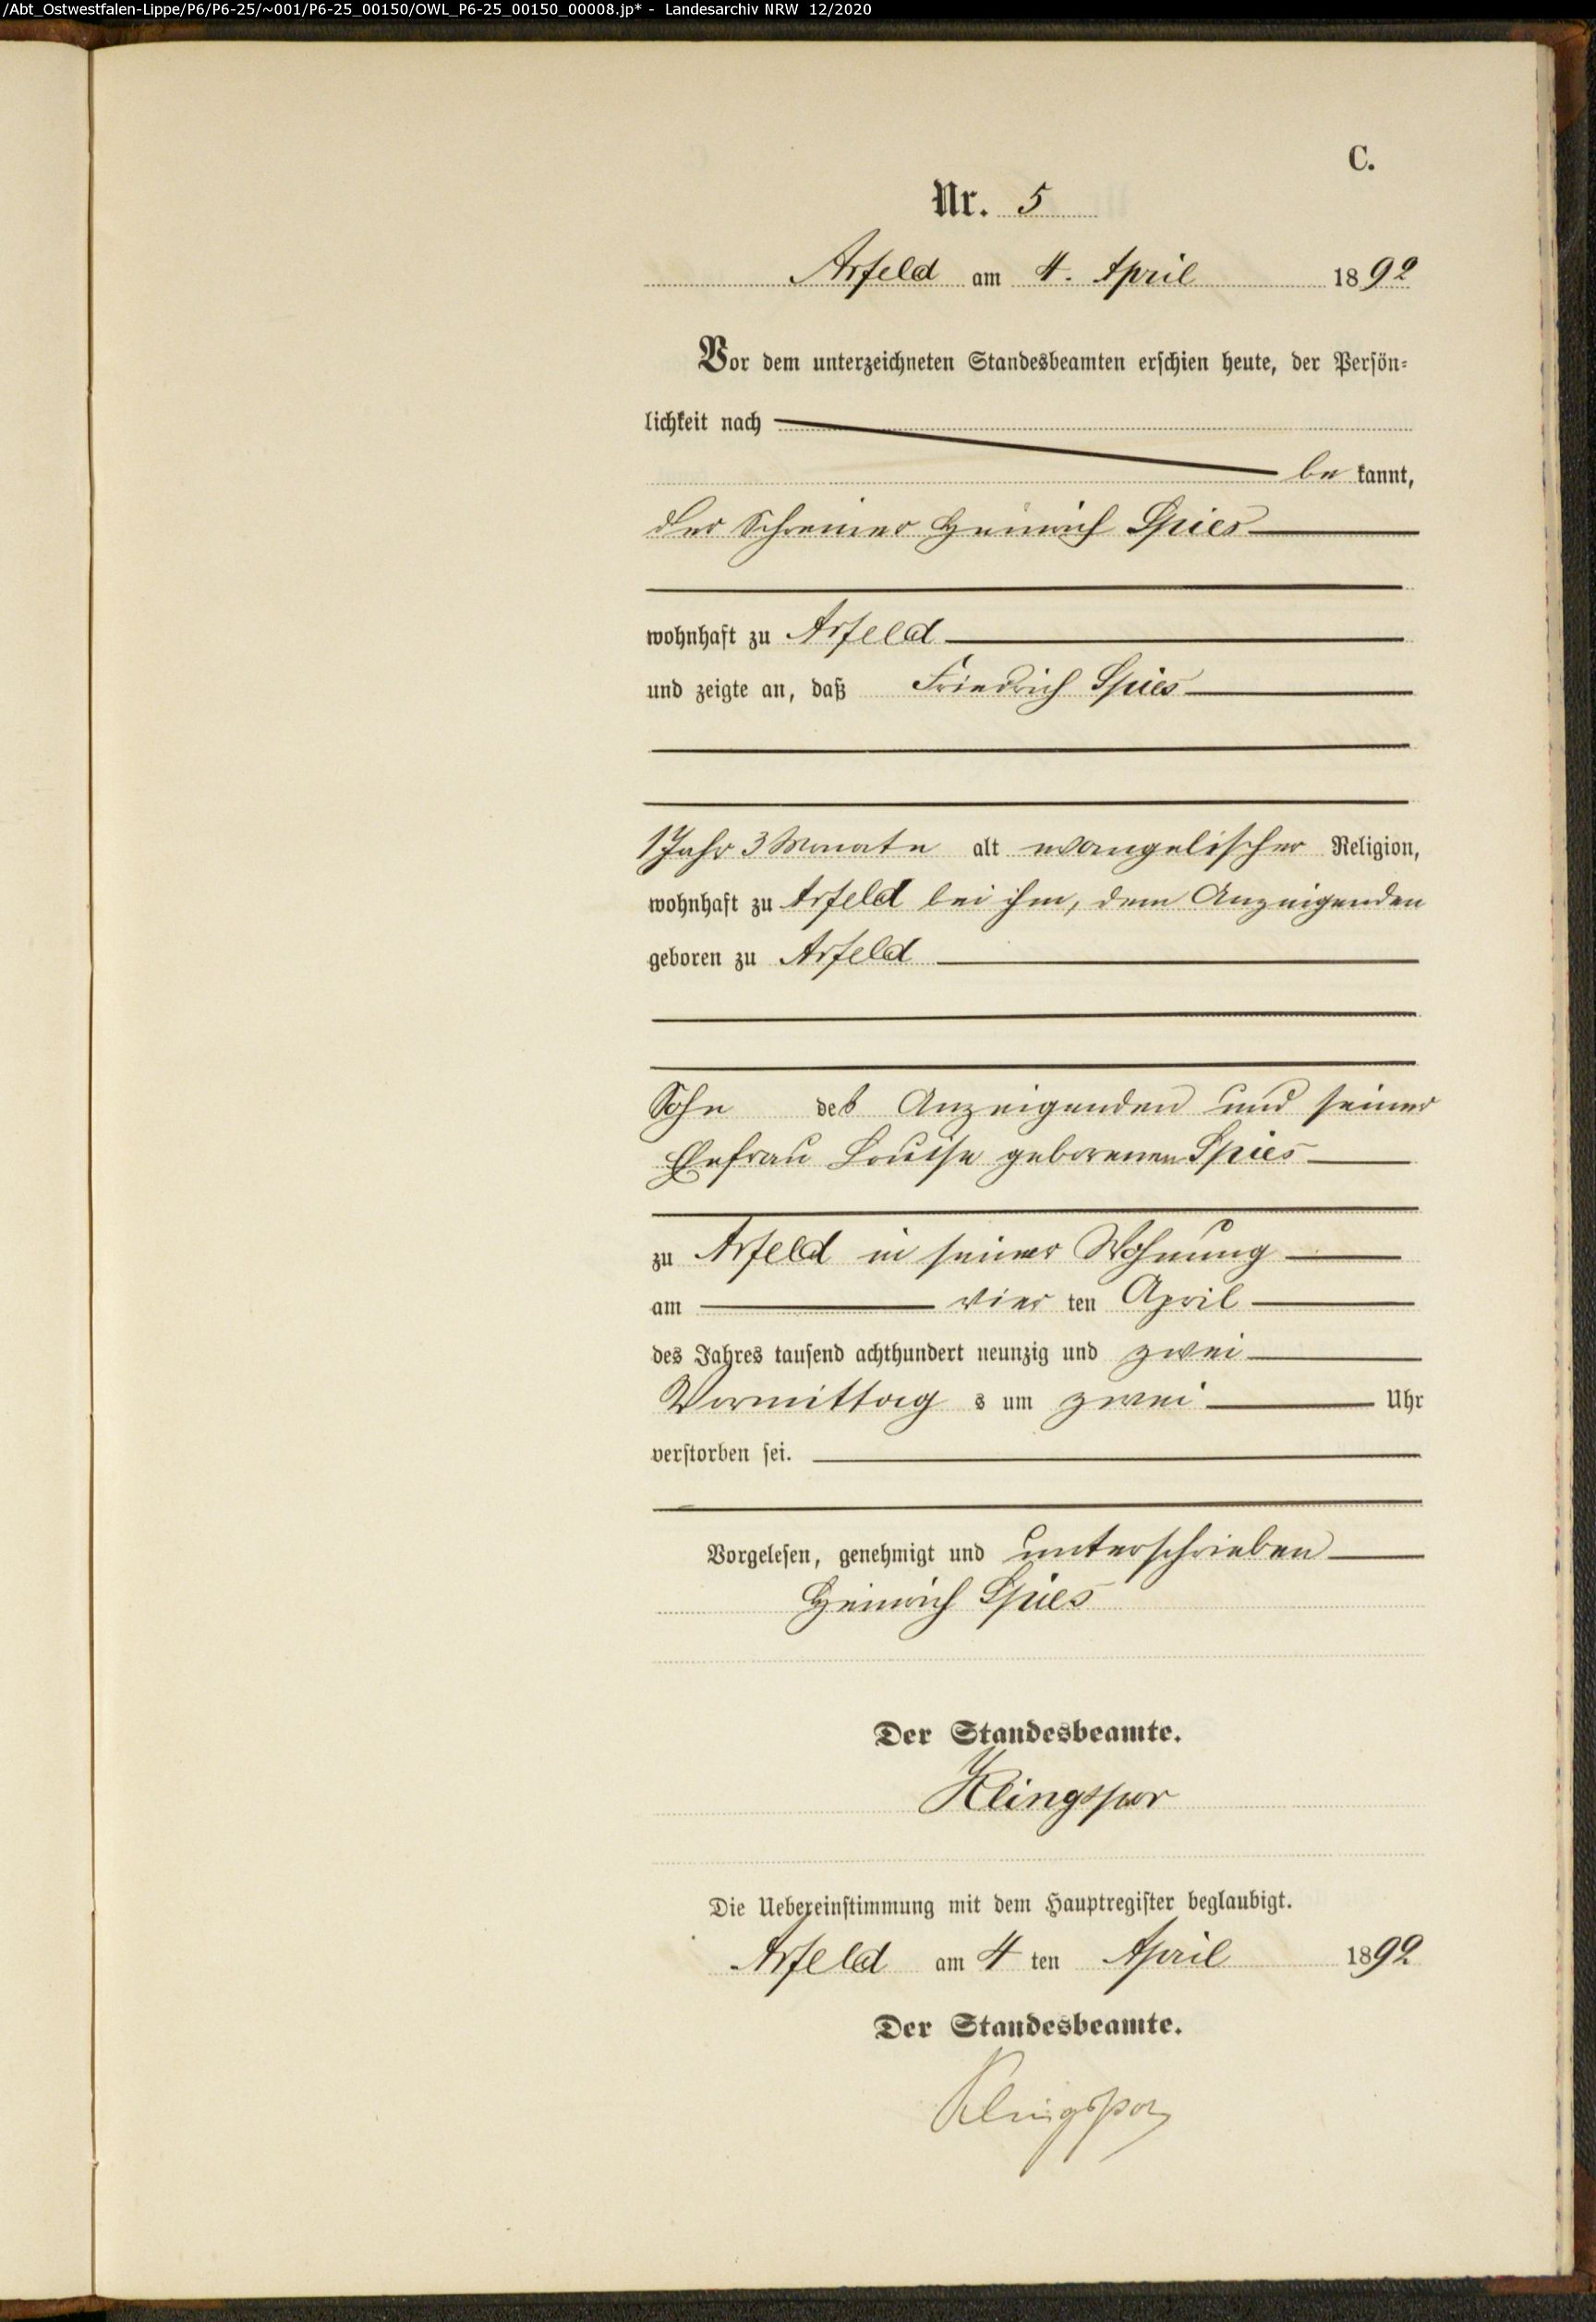 /Abt_Ostwestfalen-Lippe/P6/P6-25/~001/P6-25_00150/OWL_P6-25_00150_00008.jp* - Landesarchiv NRW 12/2020
C.
Nr. 5
Arfeld am 4. April 1892
Vor dem unterzeichneten Standesbeamten erschien heute, der Persön-
lichkeit nach
be kannt,
der Schreiner Heinrich Spies
wohnhaft zu Arfeld
und zeigte an, daß Friedrich Spies
1 Jahr 3 Monate alt evangelischer Religion,
wohnhaft zu Arfeld bei ihm, dem Anzeigenden
geboren zu Arfeld
Sohn des Anzeigenden und seiner
Ehefrau Louise geborenen Spies
zu Arfeld in seiner Wohnung
am vier ten April
des Jahres tausend achthundert neunzig und zwei
Vormittag s um zwei Uhr
verstorben sei.
Vorgelesen, genehmigt und unterschrieben
Heinrich Spies
Der Standesbeamte.
Klingspor
Die Uebereinstimmung mit dem Hauptregister beglaubigt.
Arfeld am 4 ten April 1892
Der Standesbeamte.
Klingspor